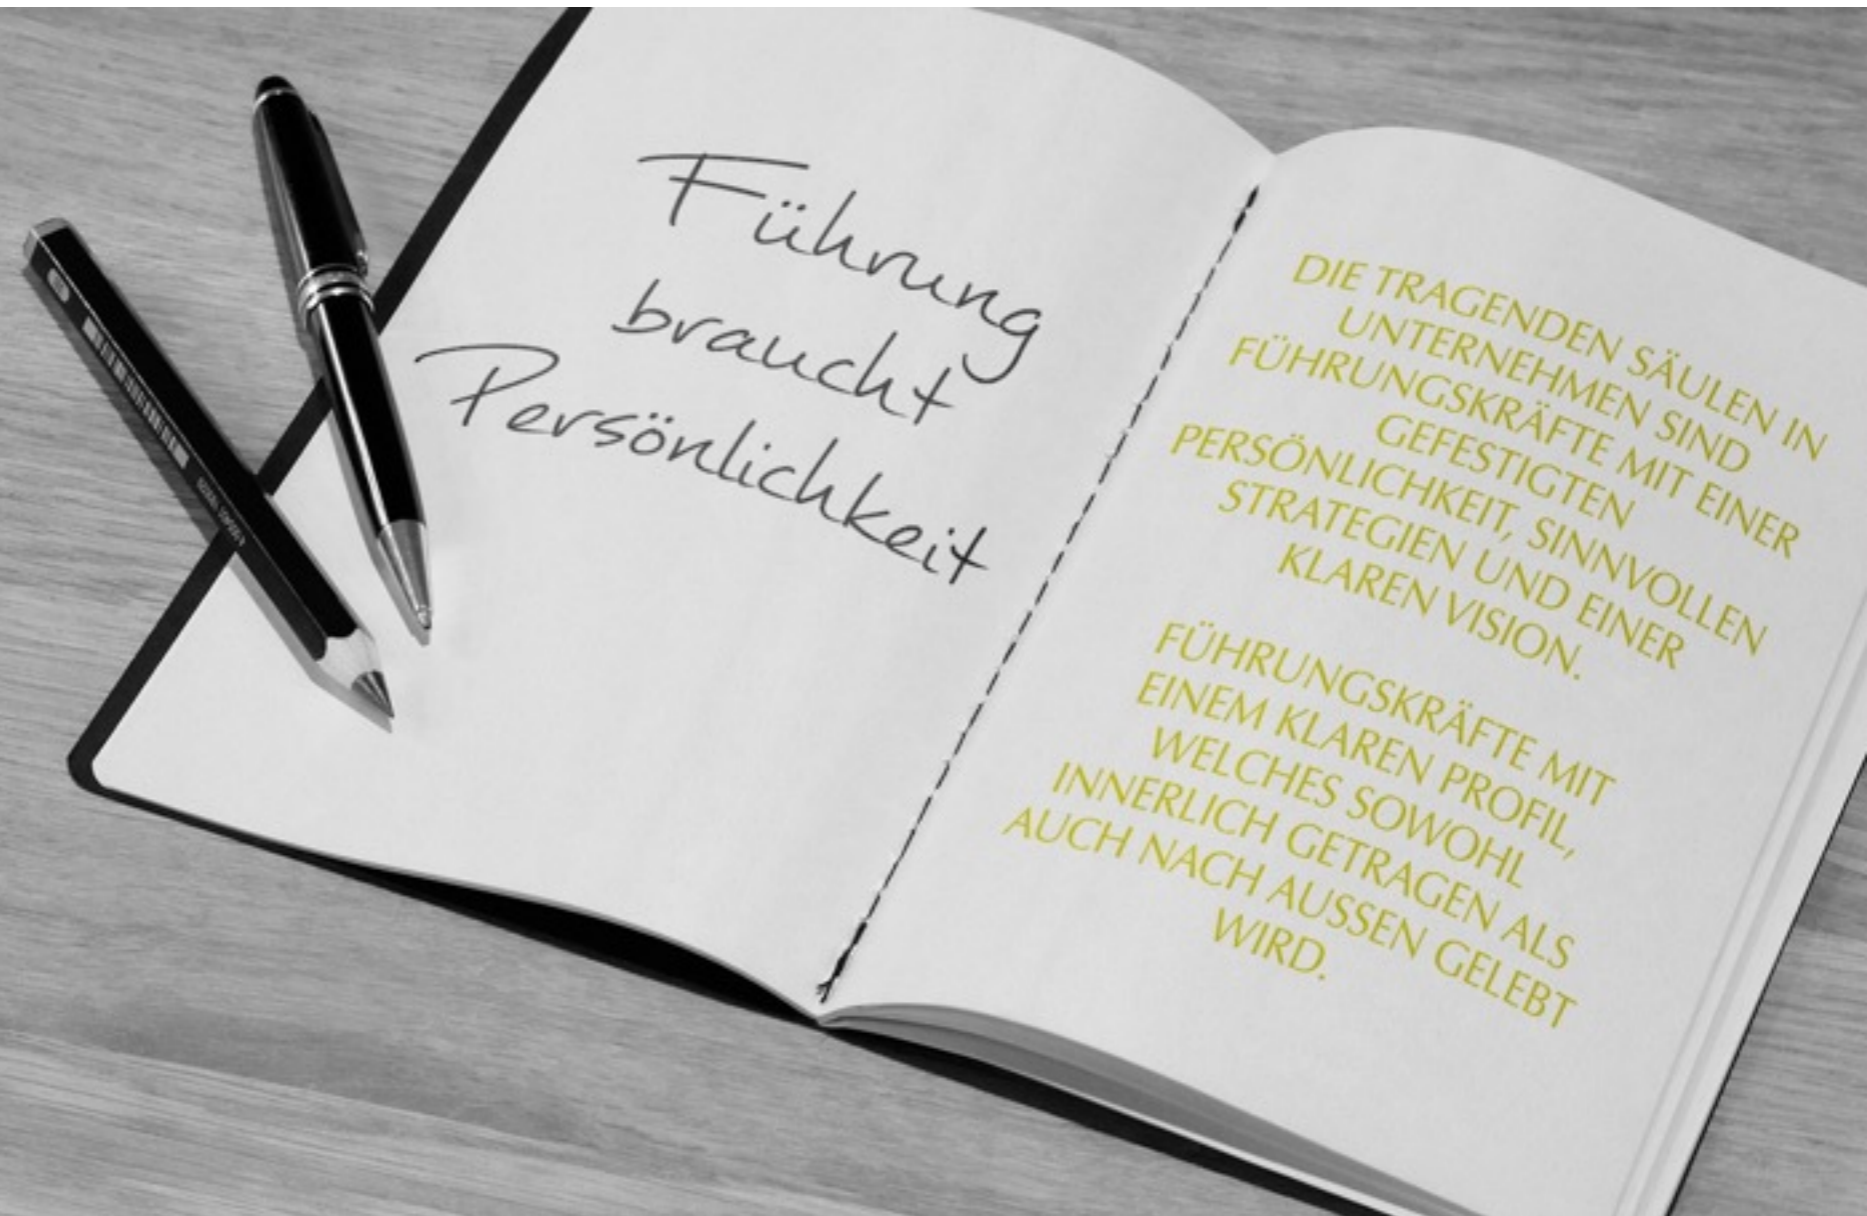 Führung
braucht
Persönlichkeit
DIE TRAGENDEN SÄULEN IN
UNTERNEHMEN SIND
FÜHRUNGSKRÄFTE MIT EINER
GEFESTIGTEN
PERSÖNLICHKEIT, SINNVOLLEN
STRATEGIEN UND EINER
KLAREN VISION.
FÜHRUNGSKRÄFTE MIT
EINEM KLAREN PROFIL,
WELCHES SOWOHL
INNERLICH GETRAGEN ALS
AUCH NACH AUSSEN GELEBT
WIRD.